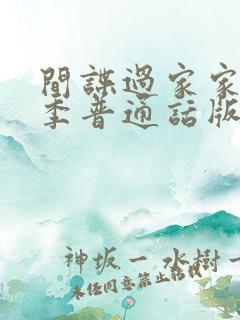 間諜過家家
季普通話版
神坂一 水樹一
未經同意禁止轉載